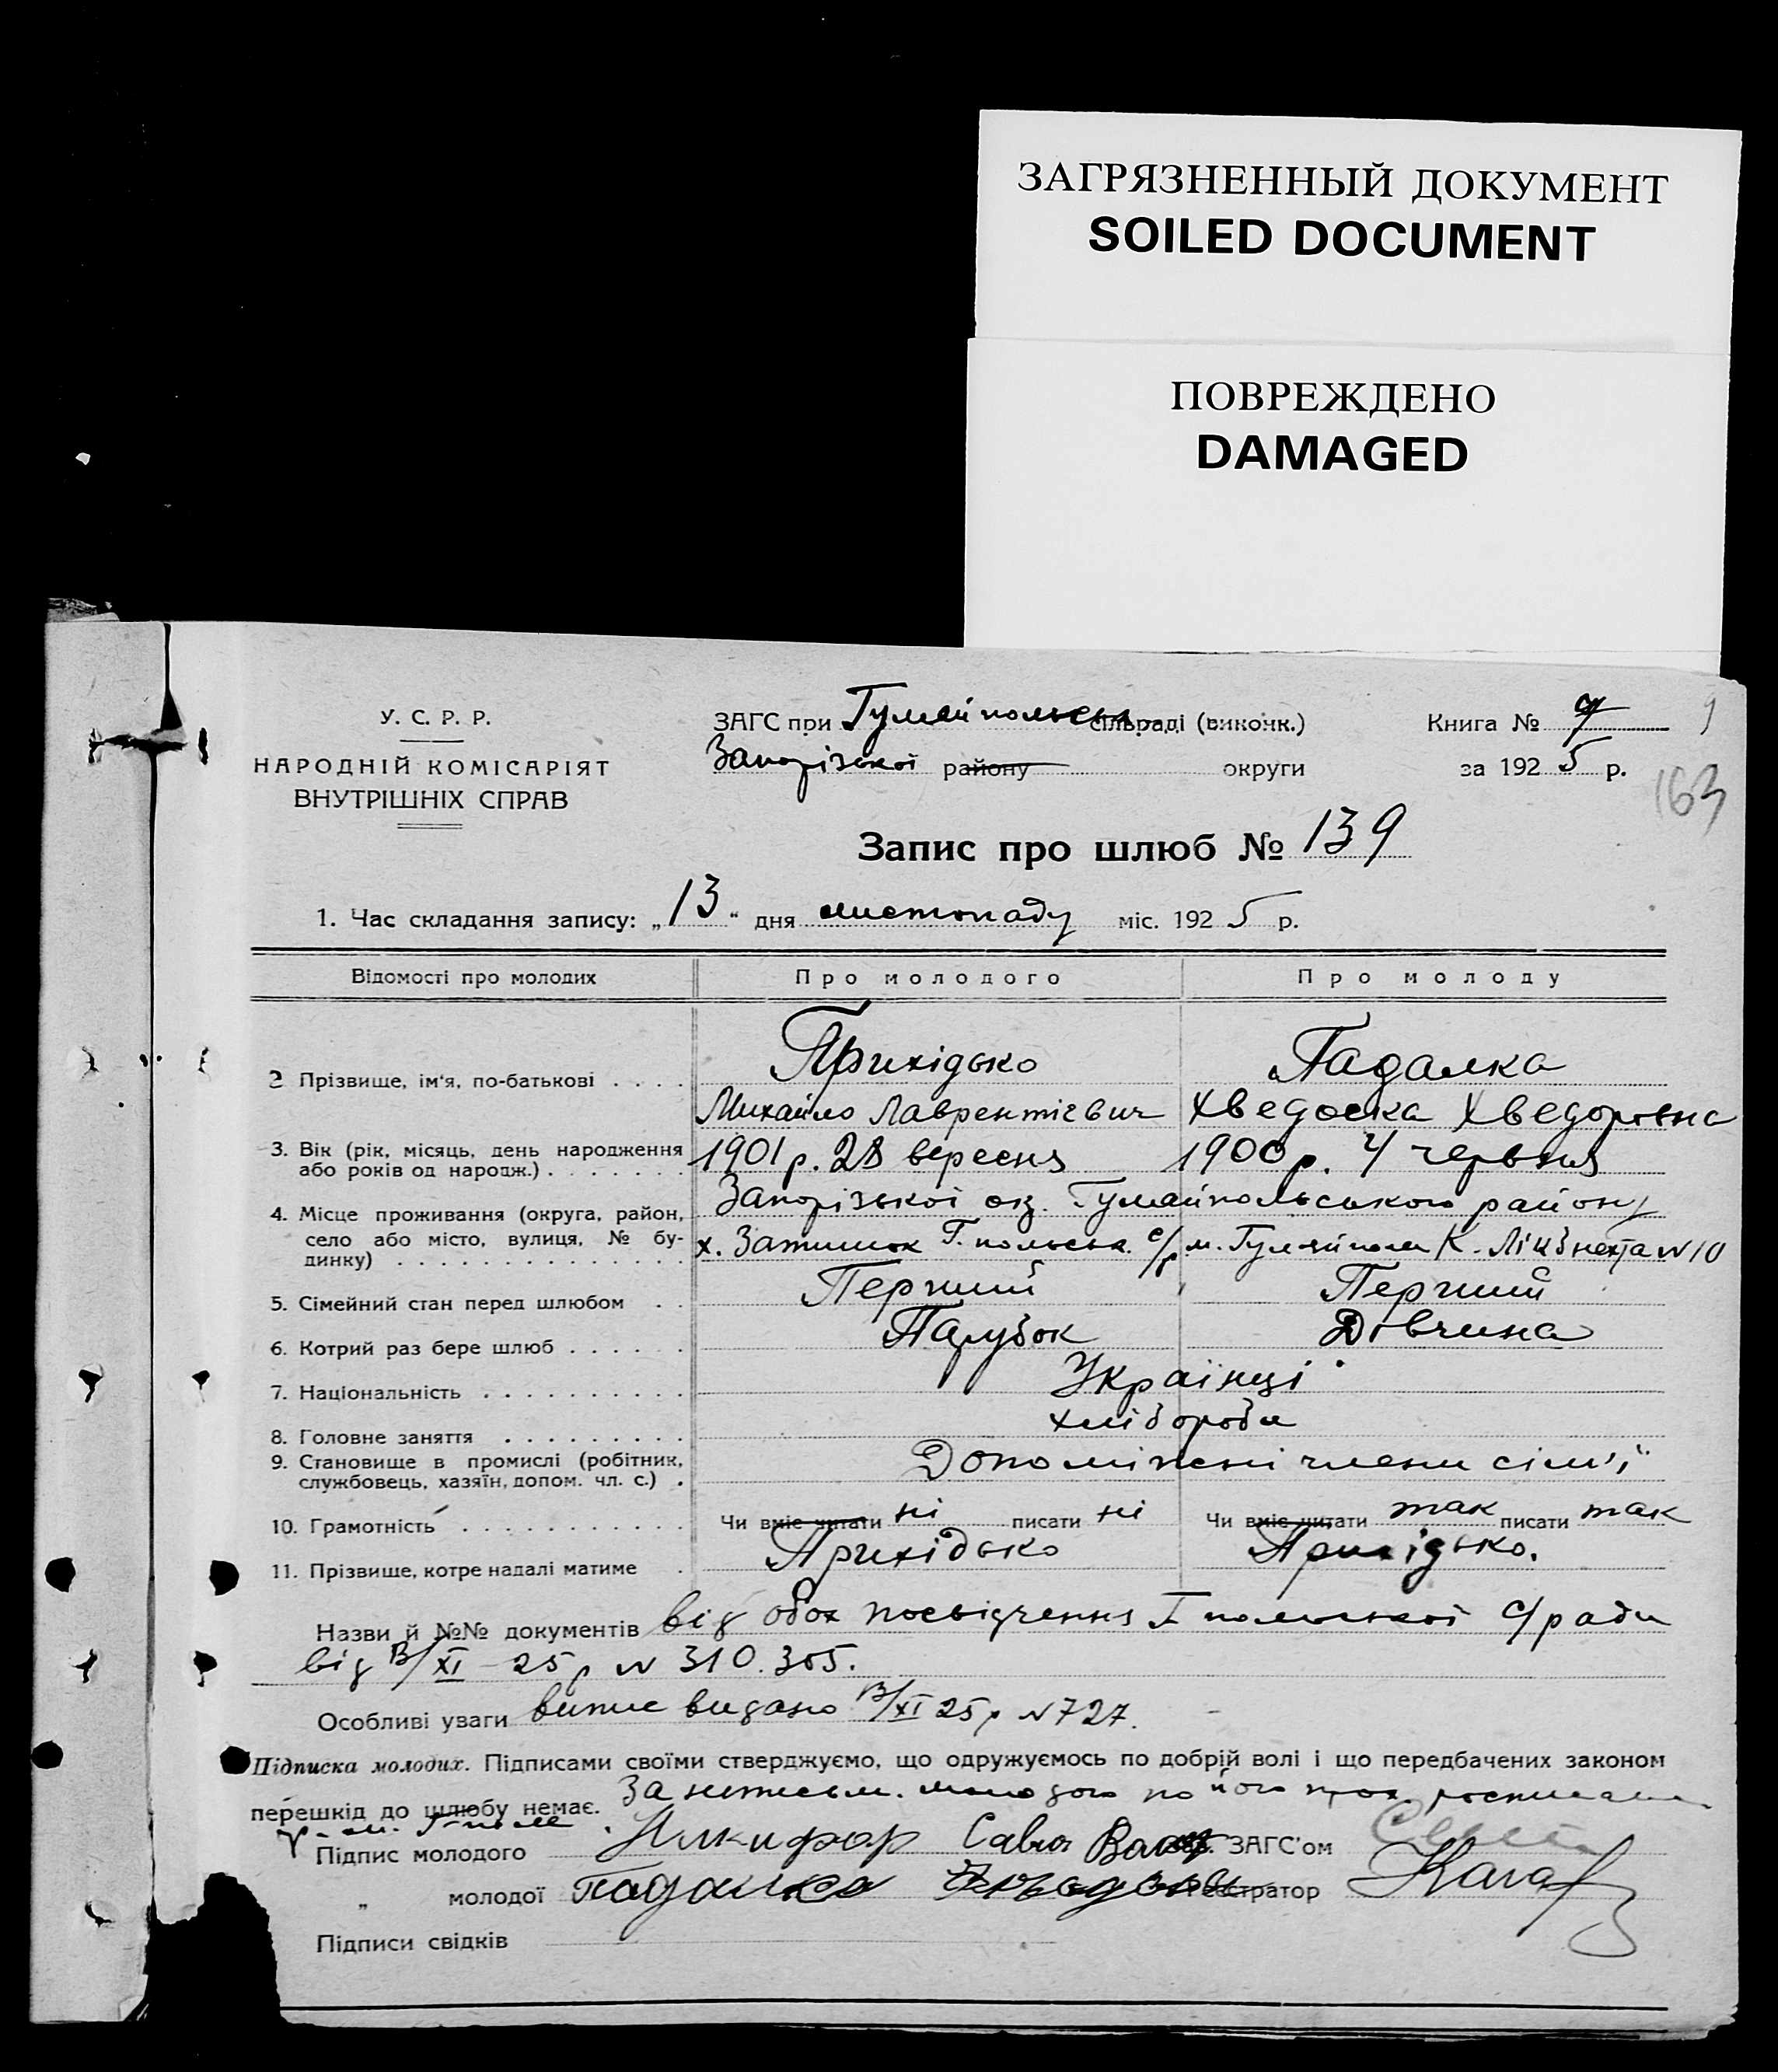 ЗАГРЯЗНЕННЫЙ ДОКУМЕНТ
SOILED DOCUMENT
ПОВРЕЖДЕНО
DAMAGED
У. С. Р. Р.
НАРОДНІЙ КОМІСАРІЯТ
ВНУТРІШНІХ СПРАВ
ЗАГС при Гуляйпольськ сільраді (виконк.)
Запорізької району округи
Книга № 7
за 1925 р.
163
Запис про шлюб № 139
1. Час складання запису: „13“ дня листопаду міс. 1925 р.
Відомості про молодих Про молодого Про молоду
2 Прізвище, ім'я, по-батькові . . . . Прихідько Падалка
Михайло Лаврентієвич Хведоска Хведоровна
3. Вік (рік, місяць, день народження або років од народж.) . . . . . . . 1901 р. 28 вересня 1900 р. 4 червня
4. Місце проживання (округа, район, Запорізької ок. Гуляйпольського району
село або місто, вулиця, № будинку) . . . . . . . . . . . . . . х. Затишок Г. польськ. с/р м. Гуляйполе К. Лібкнехта № 10
5. Сімейний стан перед шлюбом . . Перший Перший
6. Котрий раз бере шлюб . . . . . . Парубок Дівчина
7. Національність . . . . . . . . . . Українці
8. Головне заняття . . . . . . . . . хлібороби
9. Становище в промислі (робітник, службовець, хазяїн, допом. чл. с.) . Допоміжні члени сім'ї
10. Грамотність . . . . . . . . . . . Чи вміє читати ні писати ні Чи вміє читати так писати так
11. Прізвище, котре надалі матиме . Прихідько Прихідько.
Назви й №№ документів від обох посвідчення Г польської с/ради
від 13/XI – 25 р № 310. 305.
Особливі уваги випис видано 13/XI 25 р № 727.
Підписка молодих. Підписами своїми стверджуємо, що одружуємось по добрій волі і що передбачених законом
перешкід до шлюбу немає. За неписьм. молодого по його прох.
Підпис молодого Никифор ЗАГС'ом
„ молодої Падалка Реєстратор
Підписи свідків